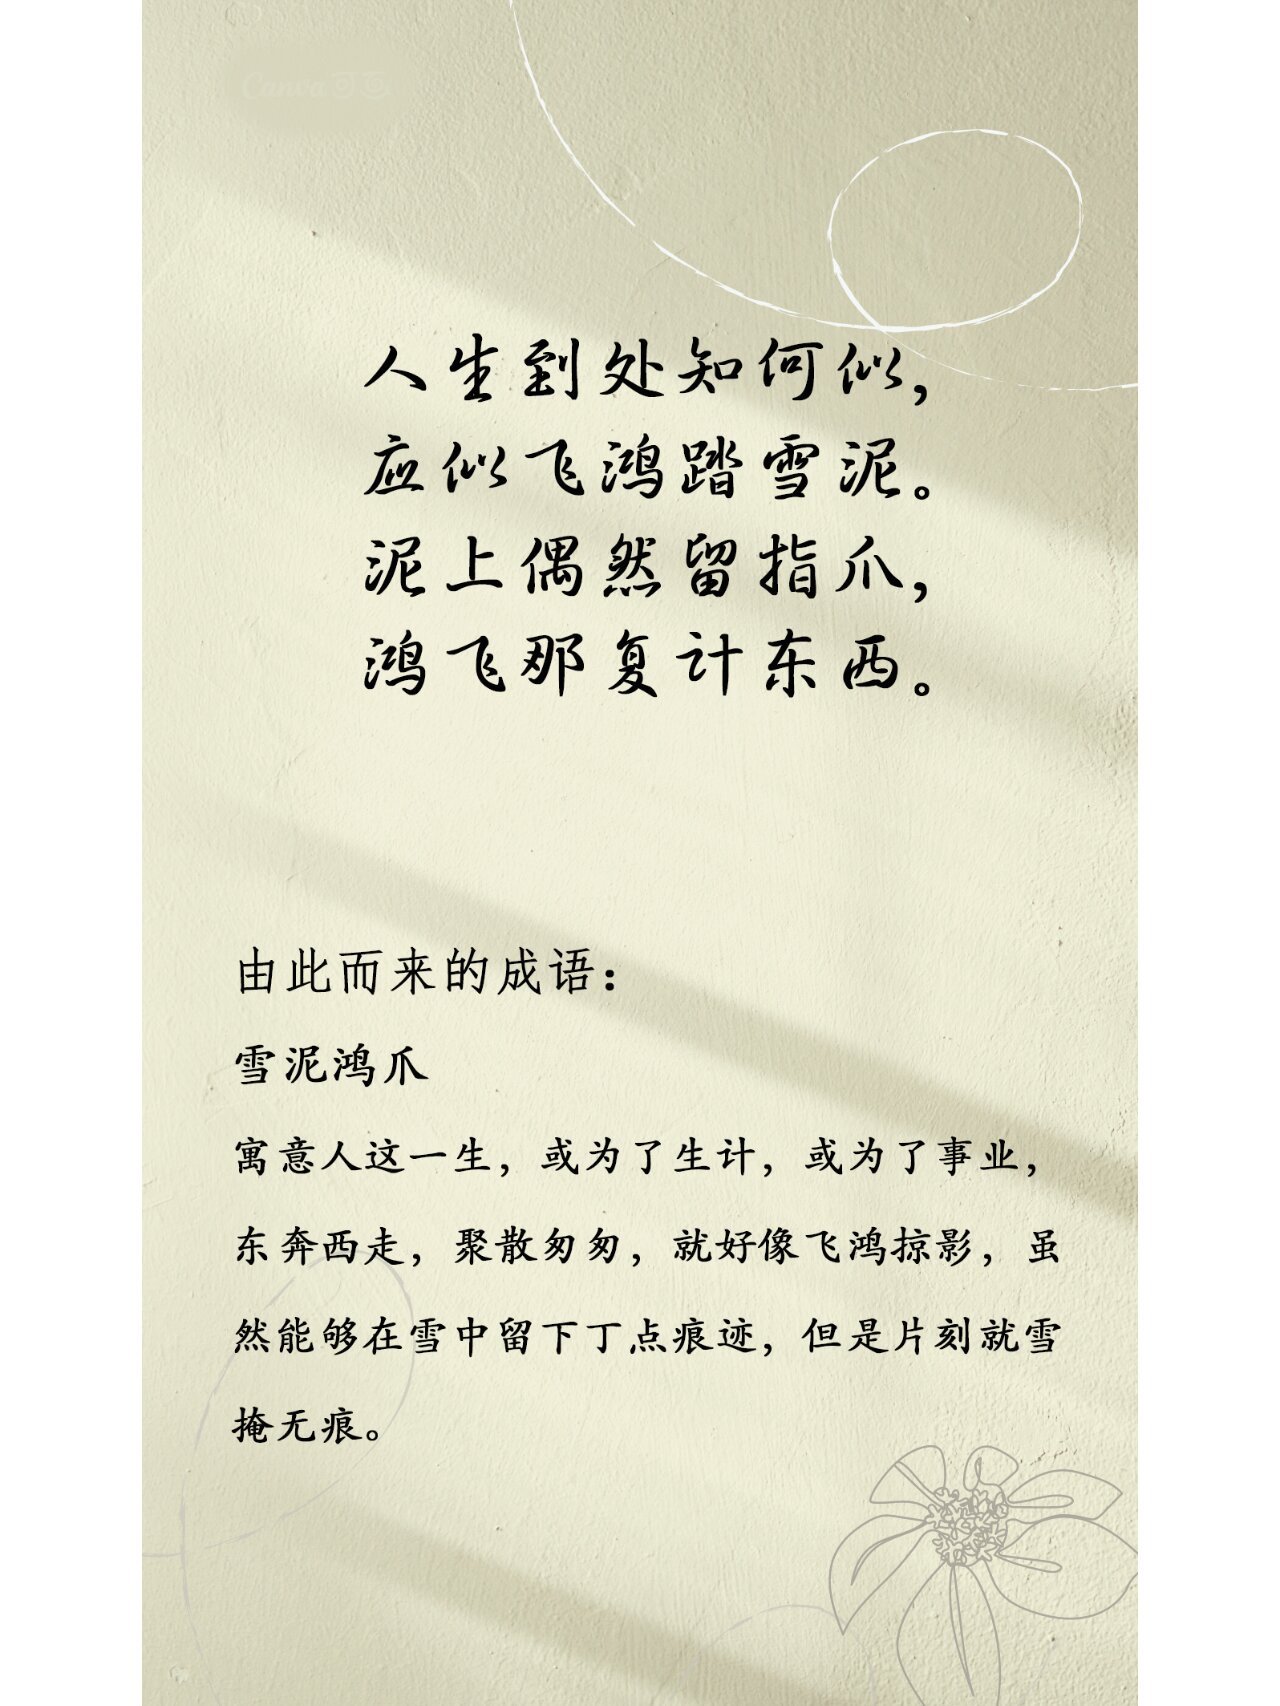 Canva可画
人生到处知何似，
应似飞鸿踏雪泥。
泥上偶然留指爪，
鸿飞那复计东西。
由此而来的成语：
雪泥鸿爪
寓意人这一生，或为了生计，或为了事业，
东奔西走，聚散匆匆，就好像飞鸿掠影，虽
然能够在雪中留下丁点痕迹，但是片刻就雪
掩无痕。